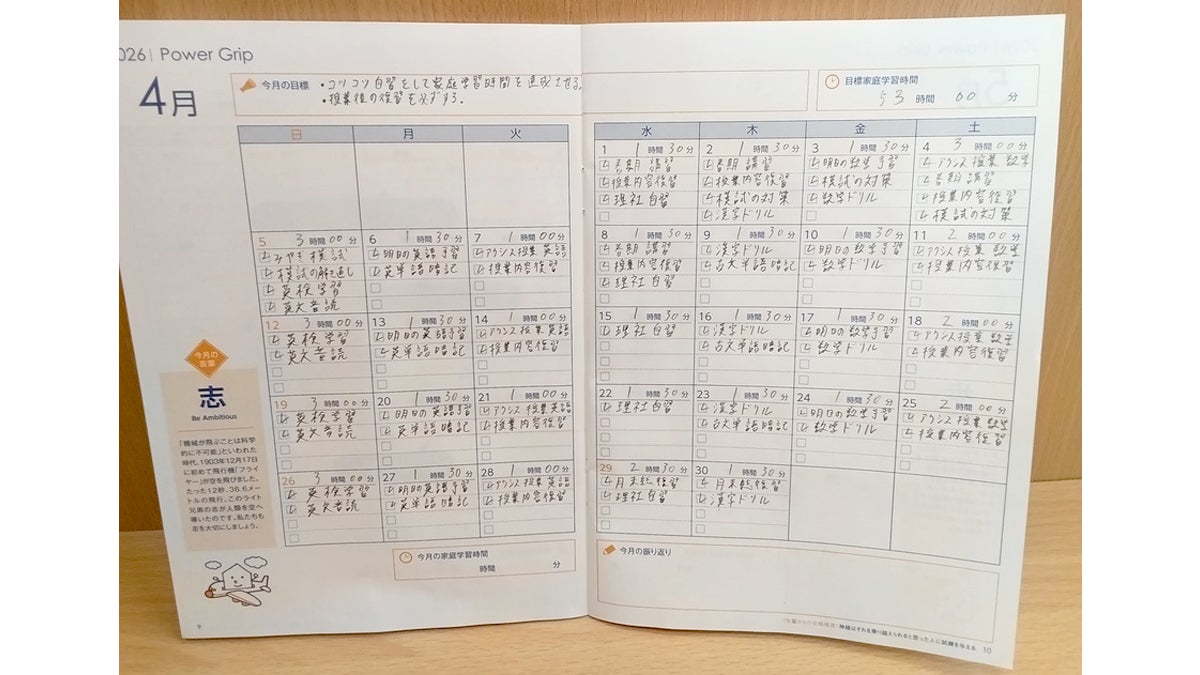 2026 | Power Grip
4月
今月の目標 ・コツコツ自習をして家庭学習時間を達成させる。
・授業後の復習を必ずする。
目標家庭学習時間
53時間 00分
日 月 火 水 木 金 土
1 1時間30分
春期講習
授業内容復習
理社自習
2 1時間30分
春期講習
授業内容復習
模試の対策
漢字ドリル
3 1時間30分
明日の数学予習
模試の対策
数学ドリル
4 3時間00分
アクシス授業 数学
春期講習
授業内容復習
模試の対策
5 3時間00分
みやぎ模試
模試の解き直し
英検学習
英文音読
6 1時間30分
明日の英語予習
英単語暗記
7 1時間00分
アクシス授業 英語
授業内容復習
8 1時間30分
春期講習
授業内容復習
理社自習
9 1時間30分
漢字ドリル
古文単語暗記
10 1時間30分
明日の数学予習
数学ドリル
11 2時間00分
アクシス授業 数学
授業内容復習
12 3時間00分
英検学習
英文音読
13 1時間30分
明日の英語予習
英単語暗記
14 1時間00分
アクシス授業 英語
授業内容復習
15 1時間30分
理社自習
16 1時間30分
漢字ドリル
古文単語暗記
17 1時間30分
明日の数学予習
数学ドリル
18 2時間00分
アクシス授業 数学
授業内容復習
19 3時間00分
英検学習
英文音読
20 1時間30分
明日の英語予習
英単語暗記
21 1時間00分
アクシス授業 英語
授業内容復習
22 1時間30分
理社自習
23 1時間30分
漢字ドリル
古文単語暗記
24 1時間30分
明日の数学予習
数学ドリル
25 2時間00分
アクシス授業 数学
授業内容復習
26 3時間00分
英検学習
英文音読
27 1時間30分
明日の英語予習
英単語暗記
28 1時間00分
アクシス授業 英語
授業内容復習
29 2時間30分
月末総復習
理社自習
30 1時間30分
月末総復習
漢字ドリル
今月の言葉
志
Be Ambitious
「機械が飛ぶことは科学
的に不可能」といわれた
時代、1903年12月17日
に初めて飛行機「フライ
ヤー」が空を飛びました。
たった12秒、36.6メー
トルの飛行。このライト
兄弟の志が人類を空へ
導いたのです。私たちも
志を大切にしましょう。
今月の家庭学習時間
時間 分
今月の振り返り
9
神様はそれを乗り越えられると思った人に試練を与える 10